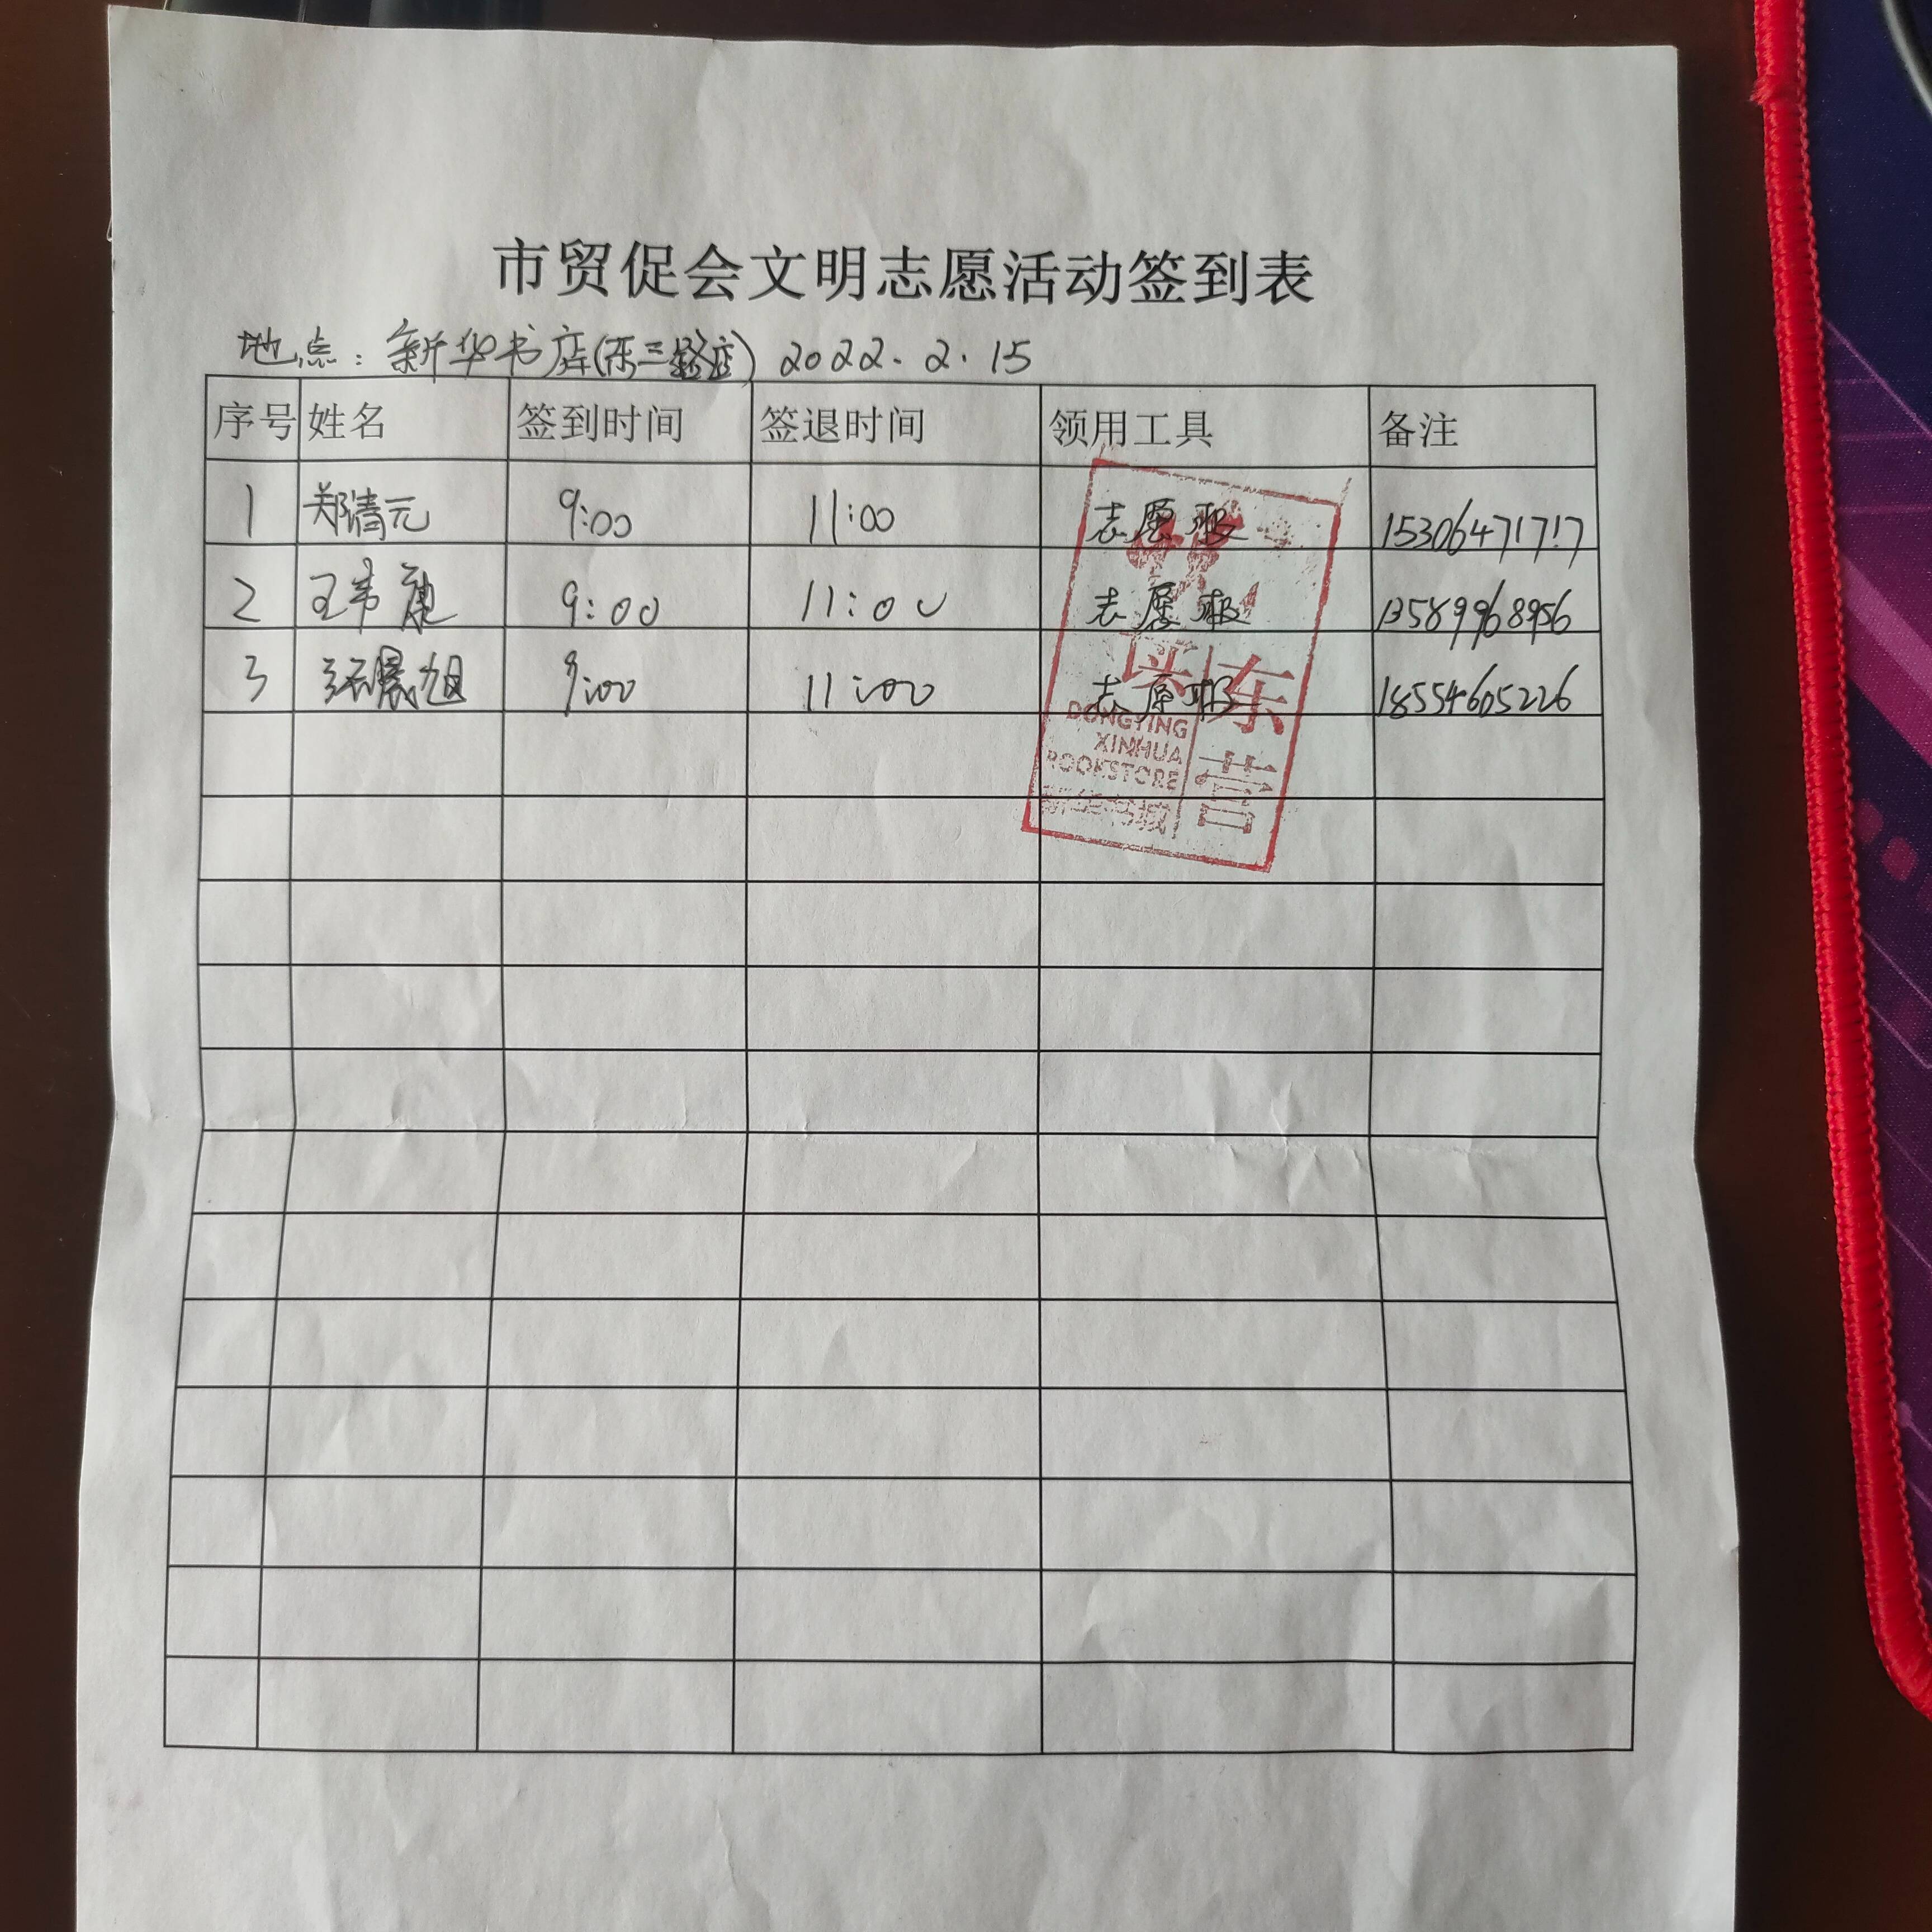 市贸促会文明志愿活动签到表
地点：新华书店(东三路店) 2022.2.15
序号 姓名 签到时间 签退时间 领用工具 备注
1 郑清元 9:00 11:00 志愿服 15306471717
2 王韦 9:00 11:00 志愿服 13589968956
3 晨旭 9:00 11:00 志愿服 18554605226
东营
DONGYING
XINHUA
BOOKSTORE
新华书城